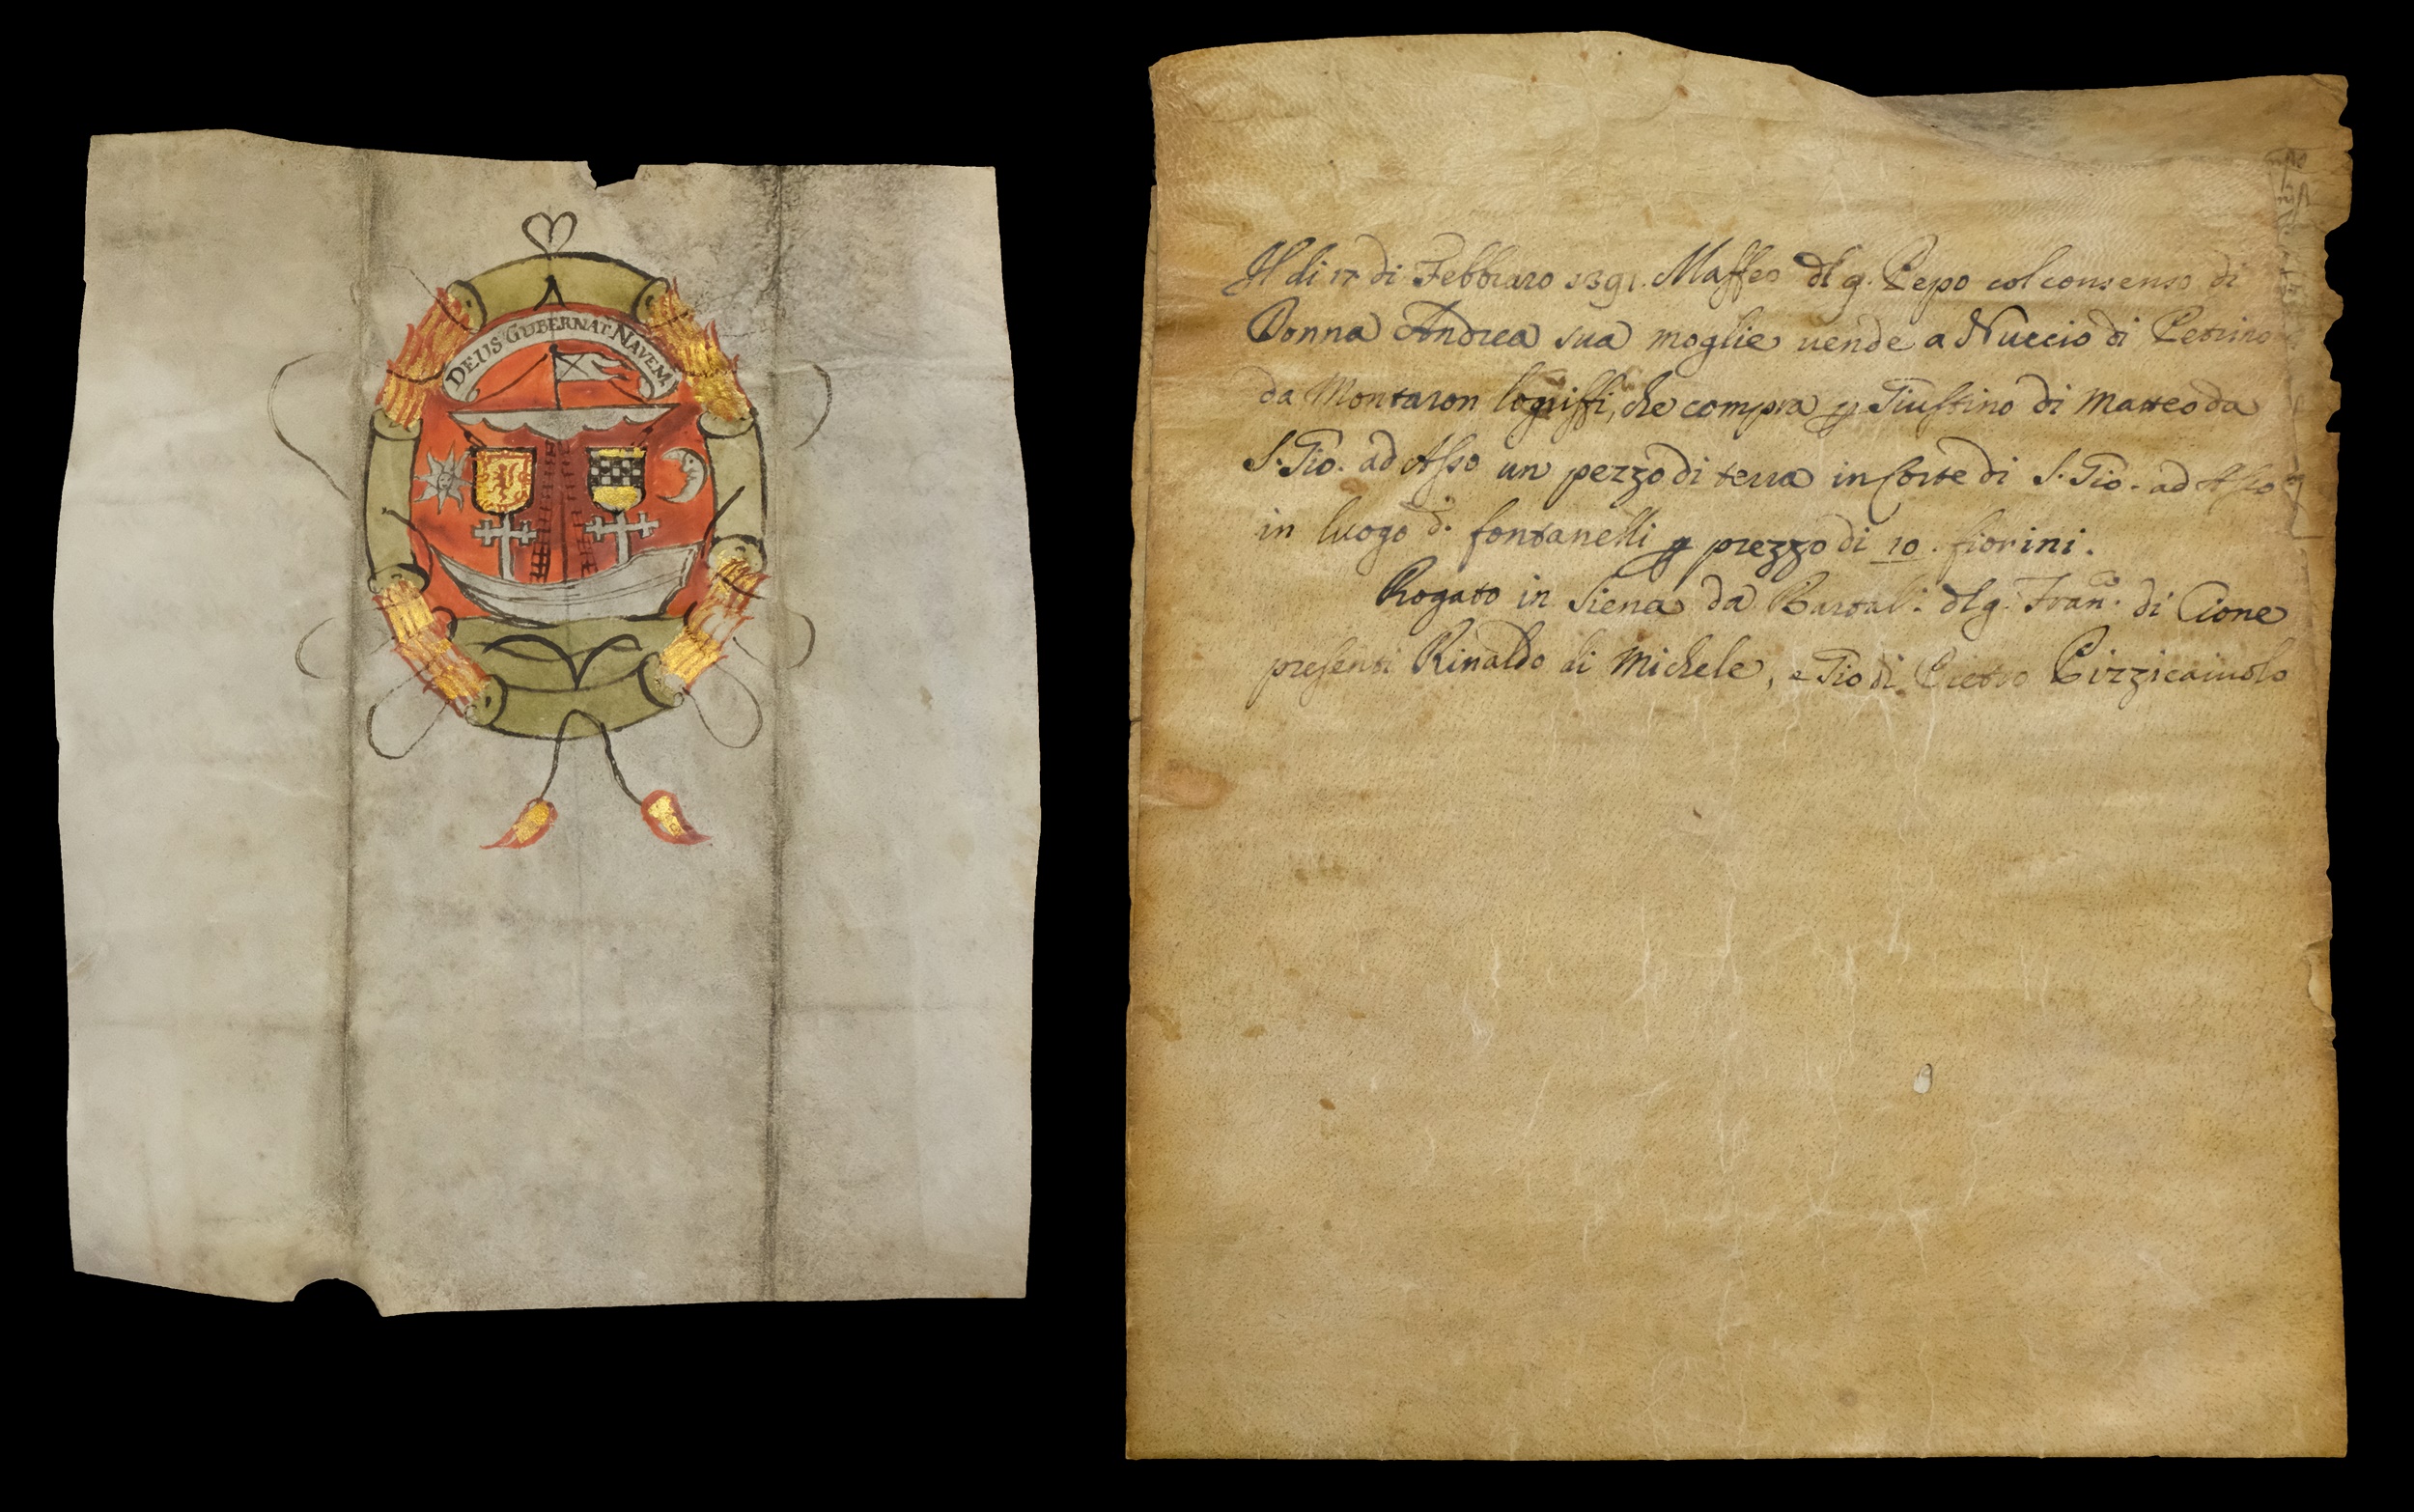 DEUS GUBERNAT NAVEM
Il di 17 di Febbraro 1391. Maffeo dl q. Pepo col consenso di
Donna Andrea sua moglie vende a Nuccio di Petrino
da Montaron Logriffi, che compra p Giustino di Matteo da
S. Gio. ad Asso un pezzo di terra in Corte di S. Gio. ad Asso
in luogo d.º fontanelli p prezzo di 10. fiorini.
Rogato in Siena da Bartal: dl q. Fran.co di Cione
presenti Rinaldo di Michele, e Gio di Pietro Pizzicaiuolo